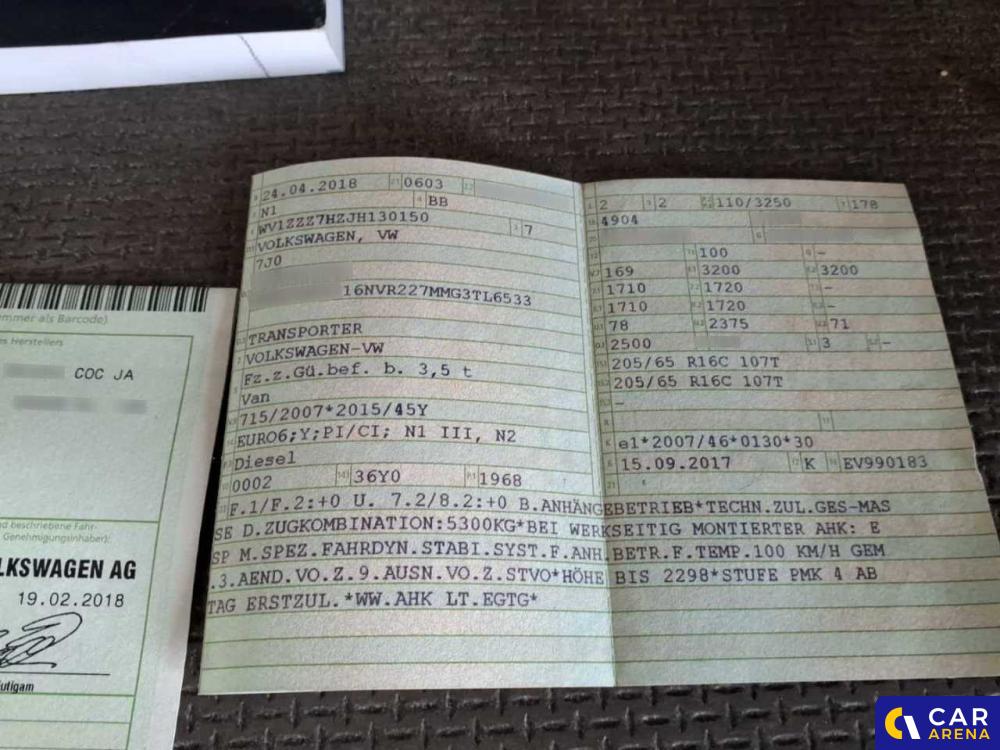 emmer als Barcode)
es Herstellers
COC JA
nd beschriebene Fahr-
Genehmigungsinhaber):
LKSWAGEN AG
19.02.2018
utigam
24.04.2018 0603
N1 BB
WV1ZZZ7HZJH130150 7
VOLKSWAGEN, VW
7J0
16NVR227MMG3TL6533
TRANSPORTER
VOLKSWAGEN-VW
Fz.z.Gü.bef. b. 3,5 t
Van
715/2007*2015/45Y
EURO6;Y;PI/CI; N1 III, N2
Diesel
0002 36Y0 1968
2 2 110/3250 178
4904
100 -
169 3200 3200
1710 1720 -
1710 1720 -
78 2375 71
2500 3 -
205/65 R16C 107T
205/65 R16C 107T
-
e1*2007/46*0130*30
15.09.2017 K EV990183
F.1/F.2:+0 U. 7.2/8.2:+0 B.ANHÄNGEBETRIEB*TECHN.ZUL.GES-MAS
SE D.ZUGKOMBINATION:5300KG*BEI WERKSEITIG MONTIERTER AHK: E
SP M.SPEZ.FAHRDYN.STABI.SYST.F.ANH.BETR.F.TEMP.100 KM/H GEM
.3.AEND.VO.Z.9.AUSN.VO.Z.STVO*HÖHE BIS 2298*STUFE PMK 4 AB
TAG ERSTZUL.*WW.AHK LT.EGTG*
CAR
ARENA